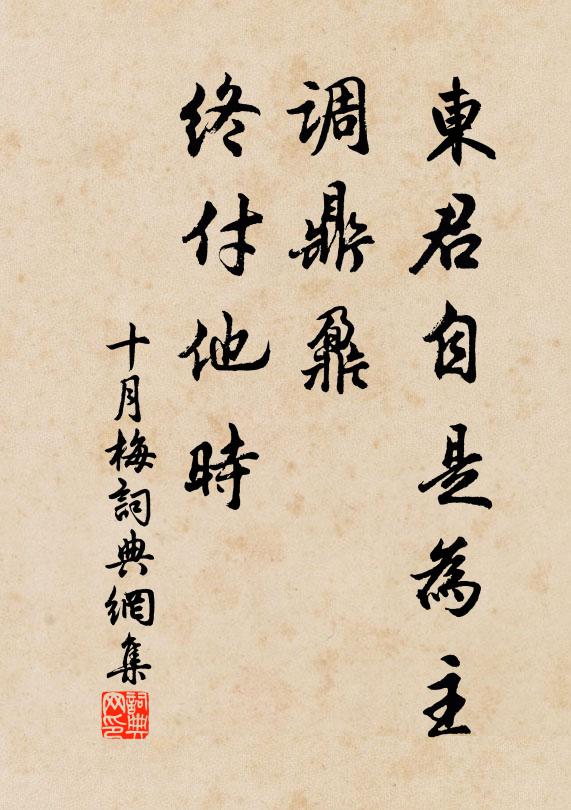 東君自是為主
調鼎鼐
終付他時
十月梅詞典網集
詞典网印